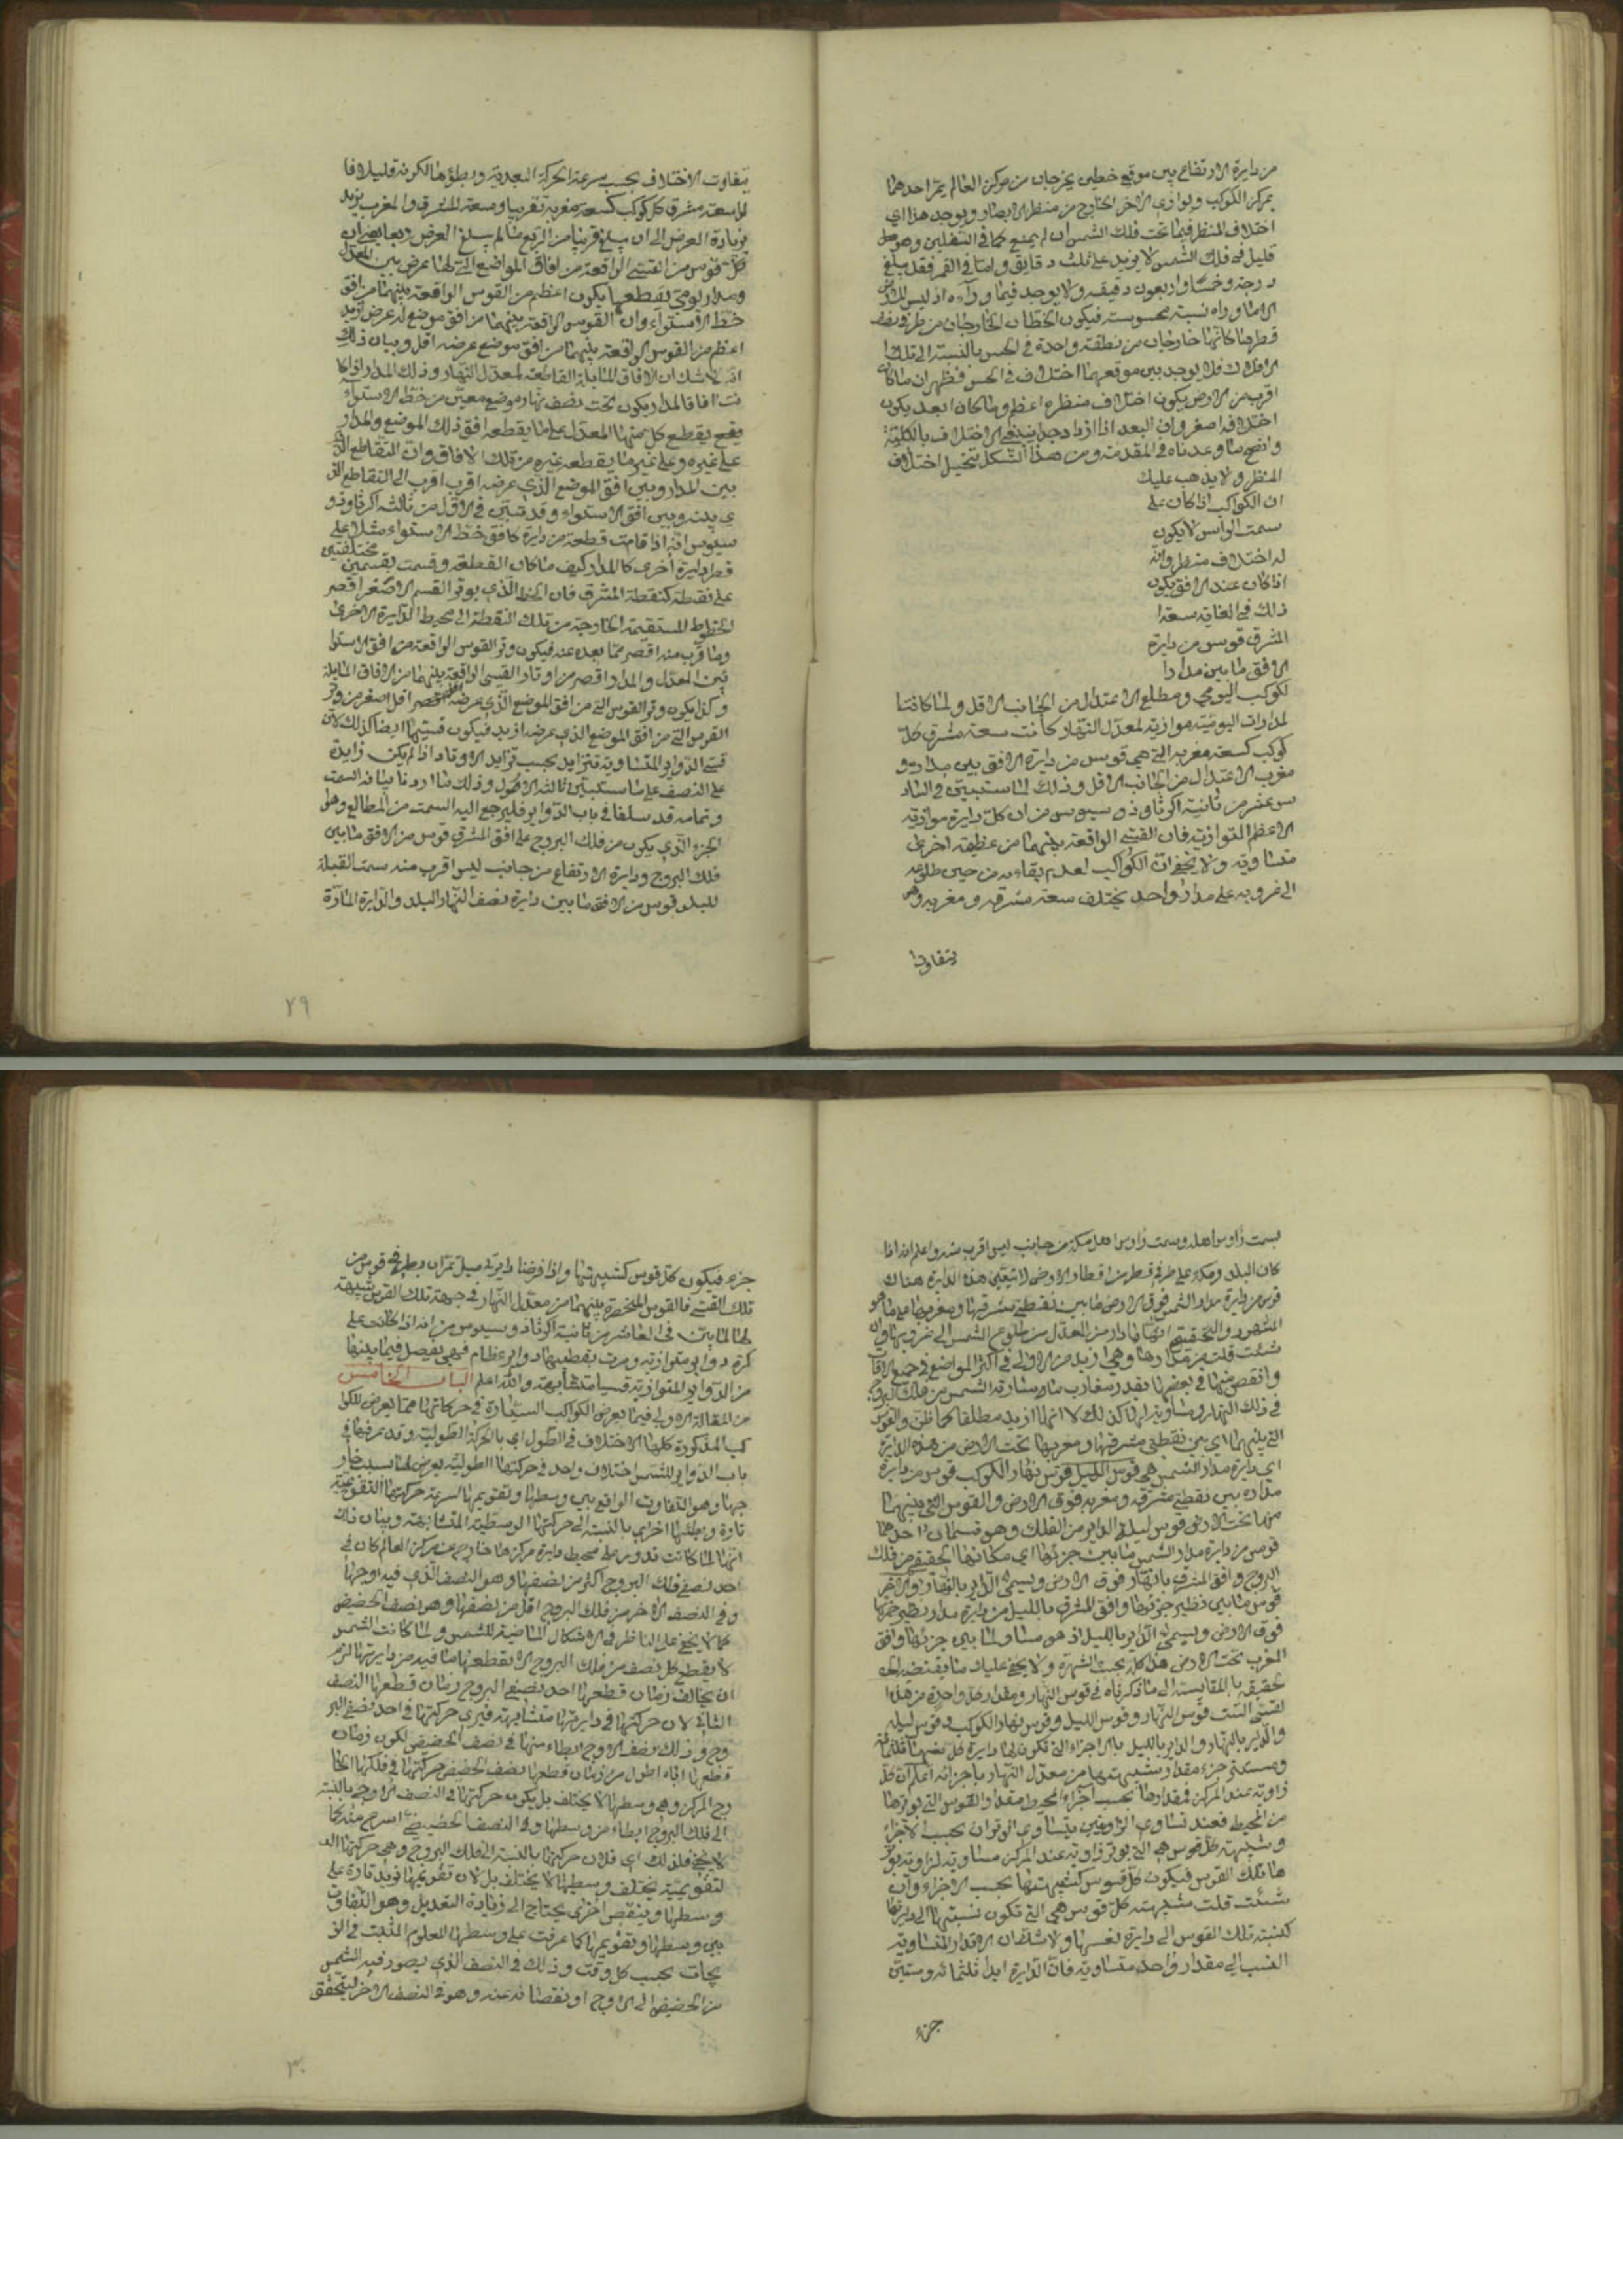 من دايرة الارتفاع بين موقع خطين يخرجان من مركز العالم يمر احدهما
بمركز الكوكب ويوازي الاخر الخارج من منظر الابصار ويوجد هذا اي
اختلاف المنظر فيما تحت فلك الشمس ان لم يمنع كما في السفلين وهو
قليل في فلك الشمس لا يزيد على ثلث دقايق واما في القمر فقد يبلغ
درجة وخمسا واربعون دقيقه ولا يوجد فيما وراءه اذ ليس للارض
الى ما وراه نسبة محسوسته فيكون الخطان الخارجان من طرفي نصف
قطرها كانهما خارجان من نقطة واحدة في الحس بالنسبة الى تلك ا
لافلاك فلا يوجد بين موقعهما اختلاف في الحس فظهر ان ما كان
اقرب من الارض يكون اختلاف منظره اعظم وما كان ابعد يكون
اختلافه اصغر وان البعد اذا ازداد جدا ينتفي الاختلاف بالكلية
واتضح ما وعدناه في المقدمة ومن هذا الشكل تتخيل اختلاف
المنظر ولا يذهب عليك
ان الكواكب اذا كان على
سمت الراس لا يكون
له اختلاف منظر وانه
اذا كان عند الافق يكون
ذلك في الغاية سعة ا
لمشرق قوس من دايرة
الافق ما بين مدار ا
لكوكب اليومي ومطلع الاعتدال من الجانب الاقل ولما كانت ا
لمدارات اليومية موازية لمعدل النهار كانت سعة مشرق كل
كوكب كسعة مغربه التي هي قوس من دايرة الافق بين مداره و
مغرب الاعتدال من الجانب الاقل وذلك لما استبين في الساد
س عشر من ثانية اكرثاوذوسيوس من ان كل دايرة موازية
الاعظم المتوازية فان القسي الواقعة بينهما من عظيمة اخرى
متساوية ولا يخفى ان الكواكب لعدم بقاءه من حين طلوعه
الى غروبه على مدار واحد يختلف سعة مشرقه ومغربه وهي
يتفاوت ا
يتفاوت الاختلاف بحسب سرعة الحركة البعدية وبطؤها لكونه قليلا قا
لوا سعة مشرق كل كوكب كسعة مغربه تقريبا وسعة المشرق والمغرب يزيد
بزيادة العرض الى ان يبلغ قريبا من الربع ما لم يبلغ العرض ربعا يعني ان
كل قوس من القسي الواقعة من افاق المواضع التي لها عرض بين المعدل
ومدار يومي يقطعها يكون اعظم من القوس الواقعة بينهما من افق
خط الاستواء وان القوس الواقعة بينهما من افق موضع له عرض ازيد
اعظم من القوس الواقعة بينهما من افق موضع عرضه اقل وبيان ذلك
انه لا شك ان الافاق المايلة القاطعة لمعدل النهار وذلك المدار اذا كا
نت افاقا لمدار يكون تحت نصف نهار موضع معين من خط الاستواء
يقع يقطع كل منها المعدل على ما يقطعه افق ذلك الموضع والمدار
على غيره وعلى غير ما يقطعه غيره من تلك الافاق وان التقاطع الذي
بين المدار وبين افق الموضع الذي عرضه اقرب اقرب الى التقاطع الذ
ي بينه وبين افق الاستواء وقد تبين في الاول من ثالثة اكرثاوذو
سيوس انه اذا قامت قطعة من دايرة كافق خط الاستواء مثلا على
قطر دايرة اخرى كالمدار كيف ما كان القطعة وقسمت بقسمين مختلفين
على نقطة كنقطة المشرق فان الخط الذي يوتر القسم الاصغر اقصر
الخطوط المستقيمة الخارجة من تلك النقطة الى محيط الدايرة الاخرى
وما قرب منه اقصر مما بعده عنه فيكون وتر القوس الواقعة من افق الاستوا
بين المعدل والمدار اقصر من اوتار القسي الواقعة بينهما من الافاق المايلة
وكذا يكون وتر القوس التي من افق الموضع الذي عرضه اقل اصغر من وتر
القوس التي من افق الموضع الذي عرضه ازيد فيكون قسيها ايضا كذلك لان
قسي الدواير المتساوية تتزايد بحسب تزايد الاوتار اذا لم يكن زايدة
على النصف على ما ستبين ثالثة الاصول وذلك ما اردنا بيانه السمت
وتمامه قد سلفا في باب الدواير فليرجع اليه السمت من المطالع وهو
الجزء الذي يكون من فلك البروج على افق المشرق قوس من الافق ما بين
فلك البروج ودايرة الارتفاع من جانب ليس اقرب منه سمت القبلة
للبلد قوس من الافق ما بين دايرة نصف النهار البلد والدايرة المارة
٢٩
بسمت راوس اهله وسمت راوس اهل مكة من جانب ليس اقرب منه واعلم انه اذا
كان البلد ومكة على طرفي قطر من اقطار الارض لا يتعين هذه الدايرة هناك
قوس من دايرة مدار الشمس فوق الارض ما بين نقطتي مشرقها ومغربها على ما هو
المشهور والتحقيق انها ما دار من المعدل من طلوع الشمس الى غروبها وان
شئت قلت من مدارها وهي ازيد من الاولى في اكثر المواضع في جميع الاوقات
وانقص منها في بعضها بقدر مغارب ما سارته الشمس من فلك البروج
في ذلك النهار ومساوية لها كذلك لا انها ازيد مطلقا كما ظن والقوس
التي بينهما اي بين نقطتي مشرقها ومغربها تحت الارض من هذه الدايرة
اي دايرة مدار الشمس هي قوس الليل قوس نهار الكوكب قوس من دايرة
مداره بين نقطتي مشرقه ومغربه فوق الارض والقوس التي بينهما
منها تحت الارض قوس ليلة الداير من الفلك وهو قسمان احدهما
قوس من دايرة مدار الشمس ما بين جزئها اي مكانها الحقيقي من فلك
البروج وافق المشرق بالنهار فوق الارض ويسمى الداير بالنهار والاخر
قوس ما بين نظير جزئها وافق المشرق بالليل من دايرة مدار نظير جزئها
فوق الارض ويسمى الداير بالليل اذ هو مساو لما بين جزئها وافق
المغرب تحت الارض هذا كله بحسب الشهرة ولا يخفى عليك ما يقتضيه
تحقيقه بالمقايسة الى ما ذكرناه في قوس النهار ومقدار كل واحدة من هذه ا
لقسي الست قوس النهار وقوس الليل وقوس نهار الكوكب وقوس ليله
والداير بالنهار والداير بالليل بالاجزاء التي تكون لها دايرة كل منها ثلثمائة
وستين جزء مقدار شبيهتها من معدل النهار باجزائه اعلم ان كل
زاوية عند المركز فمقدارها بحسب اجزاء المحيط مقدار القوس التي يوترها
من المحيط فعند تساوي الزاويتين يتساوى الوتران بحسب الاجزاء
وشبيهة كل قوس هي التي يوتر زاوية عند المركز مساوية لزاوية يوتر
ها تلك القوس فيكون كل قوس كشبيهتها بحسب الاجزاء وان
شئت قلت شبيهة كل قوس هي التي تكون نسبتها الى دايرتها
كنسبة تلك القوس الى دايرة نفسها ولا شك ان الاقدار المتساوية
النسب الى مقدار واحد متساوية فان الدايرة ابدا ثلثمائة وستين
جزء
جزء فيكون كل قوس كشبيهتها واذا فرضنا دايرتي ميل تمران بطرفي قوس من
تلك القسي فالقوس المنحصرة بينهما من معدل النهار في جهة تلك القوس شبيهة
لها لما بين في العاشر من ثانية اكرثاذوسيوس من انه اذا كانت على
كرة دواير متوازية ومرت بقطبيها دواير عظام فهي يفصل فيما بينها
من الدواير المتوازية قسيا متشابهة والله اعلم الباب الخامس
من المقالة الاولى فيما يعرض الكواكب السيارة في حركاتها مما يعرض للكوا
كب المذكورة كلها الاختلاف في الطول اي بالحركة الطولية وقد عرفتها في
باب الدواير للشمس اختلاف واحد في حركتها الطولية يعرض لها بسبب خار
جها وهو التفاوت الواقع بين وسطها وتقويمها لسرعة حركتها التقويمية
تارة وبطئها اخرى بالنسبة الى حركتها الوسطية المتشابهة وبيان ذلك
انها لما كانت تدور على محيط دايرة مركزها خارج عن مركز العالم كان في
احد نصفي فلك البروج اكثر من نصفها وهو النصف الذي فيه اوجها
وفي النصف الاخر من فلك البروج اقل من نصفها وهو نصف الحضيض
كما لا يخفى على الناظر في الاشكال الماضية للشمس ولما كانت الشمس
لا يقطع كل نصف من فلك البروج الا بقطعها ما فيه من دايرتها لزم
ان يخالف زمان قطعها احد نصفي البروج زمان قطعها النصف
الثاني لان حركتها في دايرتها متشابهة فيرى حركتها في احد نصفي البر
وج وذلك نصف الاوج ابطاء منها في نصف الحضيض لكون زمان
قطعها اياه اطول من زمان قطعها نصف الحضيض حركتها في فلكها الخا
رج المركز وهي وسطها لا يختلف بل يكون حركتها في النصف الاوجي بالنسبة
الى فلك البروج ابطاء من وسطها وفي النصف الحضيضي اسرع منه كما
لا يخفى فلذلك اي فلان حركتها بالنسبة الى فلك البروج وهي حركتها ا
لتقويمية يختلف وسطها لا يختلف بل لان تقويمها يزيد تارة على
وسطها وينقص اخرى يحتاج الى زيادة التعديل وهو التفاوت
بين وسطها وتقويمها كما عرفت على وسطها المعلوم المثبت في الز
يجات بحسب كل وقت وذلك في النصف الذي يصعد فيه الشمس
من الحضيض الى الاوج او نقصانه عنه وهو في النصف الاخر ليتحقق
٣٠